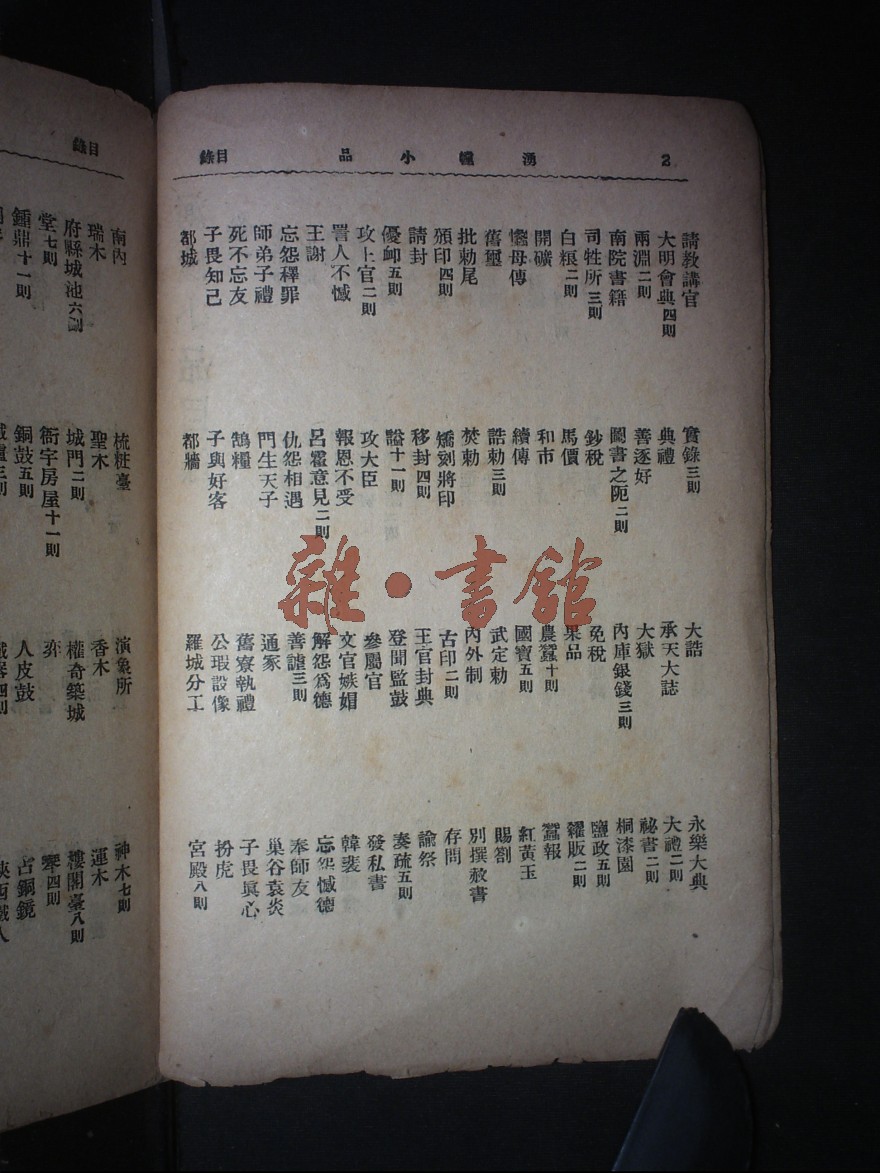 2 湧幢小品 目錄
請教講官 實錄三則 大誥 永樂大典
大明會典四則 典禮 承天大誌 大禮二則
兩淵二則 善逐好 大獄 祕書二則
南院書籍 圖書之阨二則 內庫銀錢三則 桐漆園
司牲所三則 鈔稅 免稅 鹽政五則
白粻二則 馬價 果品 糴販二則
開礦 和市 農蠶十則 蠶報
蠶母傳 續傳 國寶五則 紅黃玉
舊璽 誥勅三則 武定勅 賜劄
批勅尾 焚勅 內外制 別撰赦書
頒印四則 矯刻將印 古印二則 存問
請封 移封四則 王官封典 諭祭
優卹五則 諡十一則 登聞監鼓 奏疏五則
攻上官二則 攻大臣 參屬官 發私書
詈人不憾 報恩不受 文官嫉娼 韓裴
王謝 呂霍意見二則 解怨爲德 忘怨憾德
忘怨釋罪 仇怨相遇 善謔三則 奉師友
師弟子禮 門生天子 通家 巢谷袁炎
死不忘友 鵠糧 舊寮執禮 子畏眞心
子畏知己 子與好客 公瑕設像 扮虎
都城 都牆 羅城分工 宮殿八則
目錄
南內 梳粧臺 演象所 神木七則
瑞木 聖木 香木 運木
府縣城池六則 城門二則 權奇築城 樓閣臺八則
堂七則 衙宇房屋十一則 弈 琴四則
鍾鼎十一則 銅鼓五則 人皮鼓 古銅鏡
雜·書館